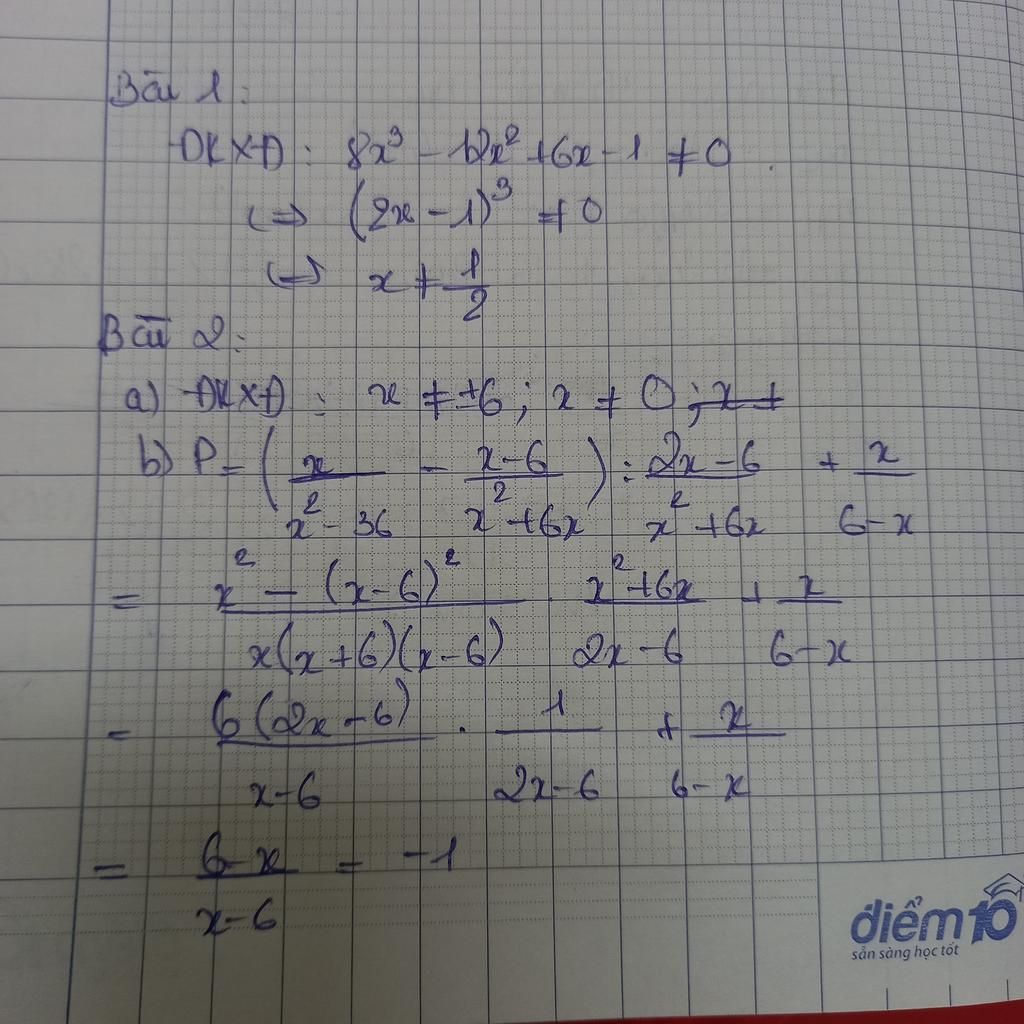 Bài 1:
ĐKXĐ: 8x³ - 12x² + 6x - 1 ≠ 0
⇔ (2x - 1)³ ≠ 0
⇔ x ≠ 1/2
Bài 2:
a) ĐKXĐ: x ≠ ±6; x ≠ 0; x ≠
b) P = (x/(x² - 36) - (x - 6)/(x² + 6x)) : (2x - 6)/(x² + 6x) + x/(6 - x)
= (x² - (x - 6)²)/(x(x + 6)(x - 6)) . (x² + 6x)/(2x - 6) + x/(6 - x)
= 6(2x - 6)/(x - 6) . 1/(2x - 6) + x/(6 - x)
= (6 - x)/(x - 6) = -1
điểm10
sẵn sàng học tốt